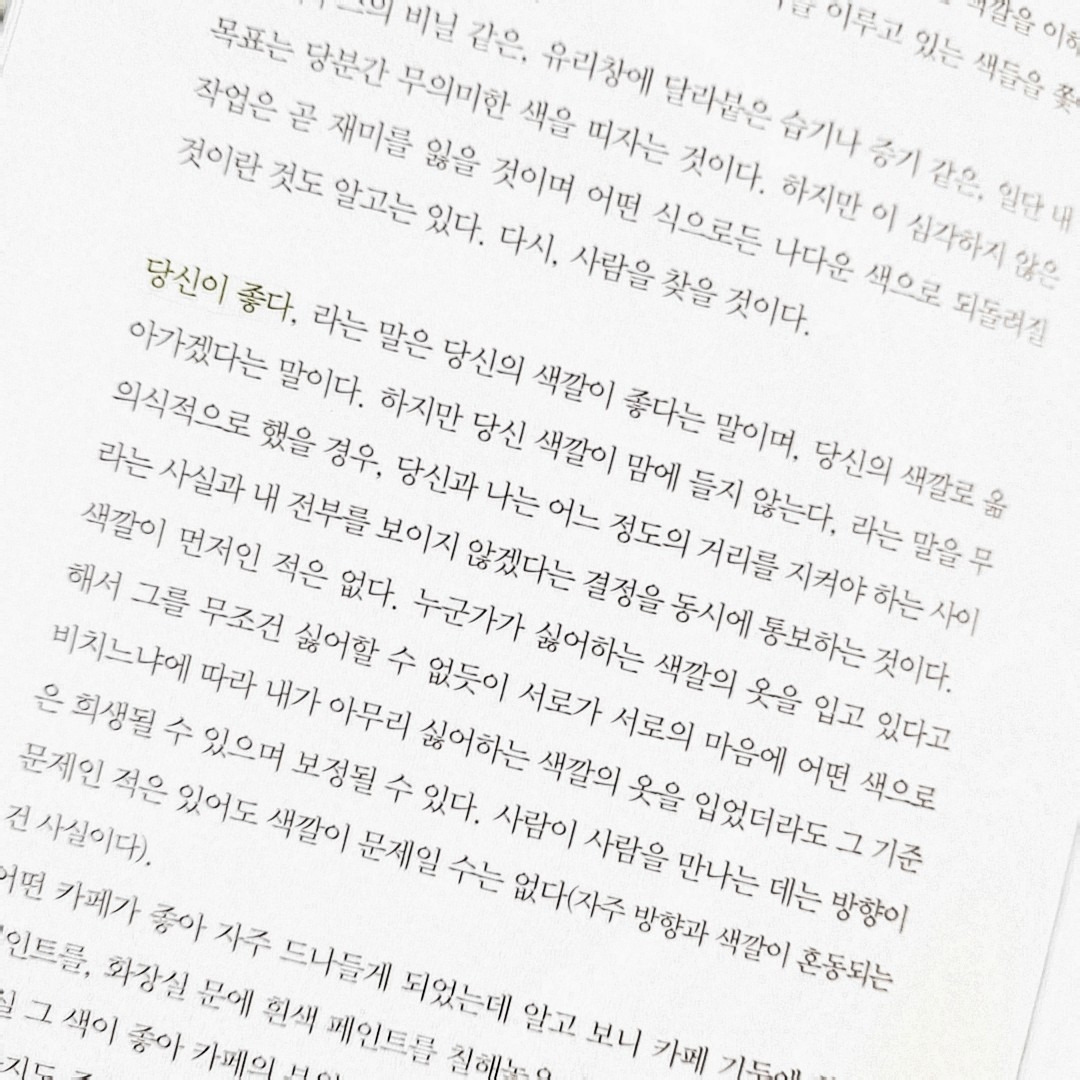 색깔을
이루고 있는 색들을
비닐 같은, 유리창에 달라붙은 습기나 증기 같은, 일단 내
목표는 당분간 무의미한 색을 띠자는 것이다. 하지만 이 심각하지 않은
작업은 곧 재미를 잃을 것이며 어떤 식으로든 나다운 색으로 되돌려질
것이란 것도 알고는 있다. 다시, 사람을 찾을 것이다.
당신이 좋다, 라는 말은 당신의 색깔이 좋다는 말이며, 당신의 색깔로 옮
아가겠다는 말이다. 하지만 당신 색깔이 맘에 들지 않는다, 라는 말을 무
의식적으로 했을 경우, 당신과 나는 어느 정도의 거리를 지켜야 하는 사이
라는 사실과 내 전부를 보이지 않겠다는 결정을 동시에 통보하는 것이다.
색깔이 먼저인 적은 없다. 누군가가 싫어하는 색깔의 옷을 입고 있다고
해서 그를 무조건 싫어할 수 없듯이 서로가 서로의 마음에 어떤 색으로
비치느냐에 따라 내가 아무리 싫어하는 색깔의 옷을 입었더라도 그 기준
은 희생될 수 있으며 보정될 수 있다. 사람이 사람을 만나는 데는 방향이
문제인 적은 있어도 색깔이 문제일 수는 없다(자주 방향과 색깔이 혼동되는
건 사실이다).
어떤 카페가 좋아 자주 드나들게 되었는데 알고 보니 카페 기둥에
인트를, 화장실 문에 흰색 페인트를 칠해놓은
그 색이 좋아 카페의